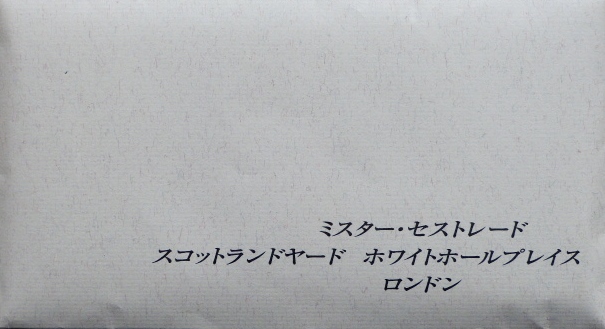 ミスター・セストレード
スコットランドヤード ホワイトホールプレイス
ロンドン